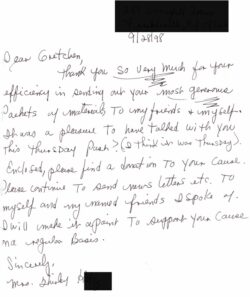 9/28/98
Dear Gretchen,
Thank you so very much for your
efficiency in sending out your most generous
Packets of materials to my friends & myself.
It was a pleasure to have talked with you
this Thursday Past (I think it was Thursday).
Enclosed, please find a donation to your cause.
Please continue to send news letters etc. to
myself and my friends I spoke of.
I will make it a point to support your cause
on a regular basis.
Sincerely,
Mrs. Shirley